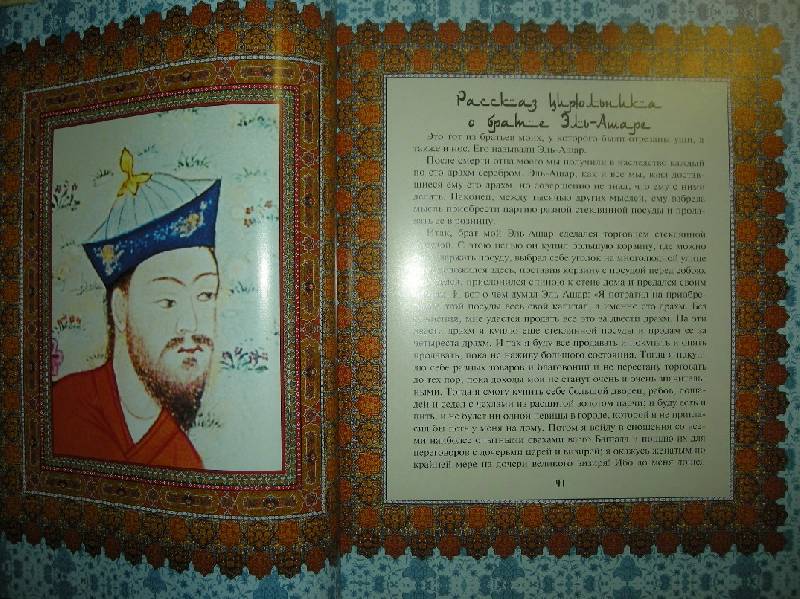 Рассказ Цирюльника
о брате Эль-Ашаре
Это тот из братьев моих, у которого были отрезаны уши, а
также и нос. Его называли Эль-Ашар.
После смерти отца моего мы получили в наследство каждый
по сто драхм серебром. Эль-Ашар, как и все мы, взял достав-
шиеся ему сто драхм, но совершенно не знал, что ему с ними
делать. Наконец, между тысячью других мыслей, ему взбрела
мысль приобрести партию разной стеклянной посуды и прода-
вать ее в розницу.
Итак, брат мой Эль-Ашар сделался торговцем стеклянной
посудой. С этою целью он купил большую корзину, где можно
держать посуду, выбрал себе уголок на многолюдной улице
расположился здесь, поставив корзину с посудой перед собою.
прислонился спиною к стене дома и предался своим
И вот о чем думал Эль-Ашар: «Я потратил на приобре-
этой посуды весь свой капитал, а именно сто драхм. Без
сомнения, мне удастся продать все это за двести драхм. На эти
двести драхм я куплю еще стеклянной посуды и продам ее за
четыреста драхм. И так я буду все продавать и покупать и опять
продавать, пока не наживу большого состояния. Тогда я поку-
паю себе разных товаров и благовоний и не перестану торговать
до тех пор, пока доходы мои не станут очень и очень значитель-
ными. Тогда я смогу купить себе большой дворец, рабов, лоша-
дей и седел с чехлами из расшитой золотом парчи; я буду есть и
пить, и не будет ни одной певицы в городе, которой я не пригла-
сил бы петь у меня на дому. Потом я войду в сношения со все-
ми наиболее опытными свахами всего Багдада и пошлю их для
переговоров с дочерьми царей и визирей; я окажусь женатым по
крайней мере на дочери великого визиря! Ибо до меня до нес
91